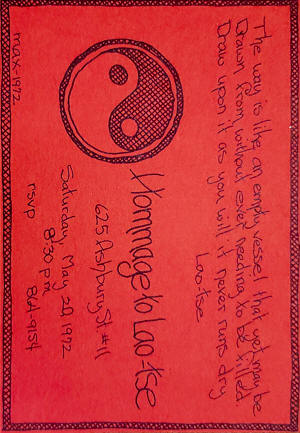 The way is like an empty vessel that yet may be
Drawn from without ever needing to be filled.
Draw upon it as you will it never runs dry
Lao-tse
Hommage to Lao-tse
625 Ashbury St #11
Saturday, May 20, 1972
8:30 p.m.
rsvp 864-9154
max-1972